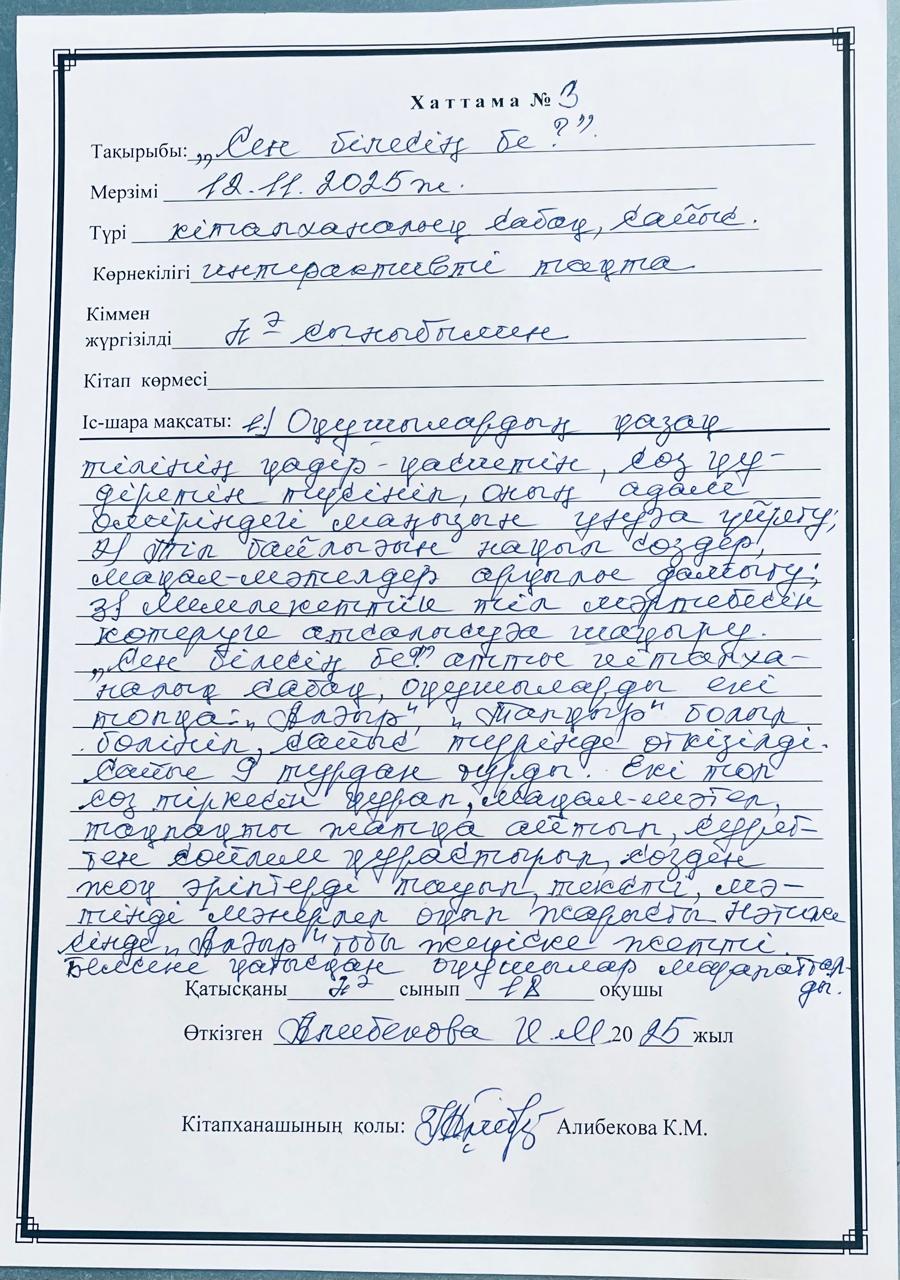 Хаттама № 3
Тақырыбы: „Сен білесің бе?”.
Мерзімі 12.11.2025ж.
Түрі кітапханалық сабақ, сайыс.
Көрнекілігі интерактивті тақта
Кіммен
жүргізілді сыныбымен
Кітап көрмесі
Іс-шара мақсаты: 1) Оқушылардың қазақ
тілінің қадір-қасиетін, сөз құ-
діретін түсініп, оның адам
өміріндегі маңызын ұғуға үйрету;
2) Тіл байлығын нақыл сөздер,
мақал-мәтелдер арқылы дамыту;
3) Мемлекеттік тіл мәртебесін
көтеруге атсалысуға шақыру.
„Сен білесің бе?” атты кітапха-
налық сабақ, оқушыларды екі
топқа: „Алғыр", „Тапқыр" болып
бөлініп, сайыс түрінде өткізілді.
Сайыс 9 турдан тұрды. Екі топ
сөз тіркесін құрап, мақал-мәтел,
тақпақты жатқа айтып, сурет-
тен сөйлем құрастырып, сөзден
жоқ әріптерді тауып, тексті, мә-
тінді мәнерлеп оқып жарысты. Нәтиже
сінде „Алғыр" тобы жеңіске жетті.
Белсене қатысқан оқушылар марапаттал-
ды.
Қатысқаны сынып 18 оқушы
Өткізген Алибекова К.М. 2025 жыл
Кітапханашының қолы: Алибекова К.М.